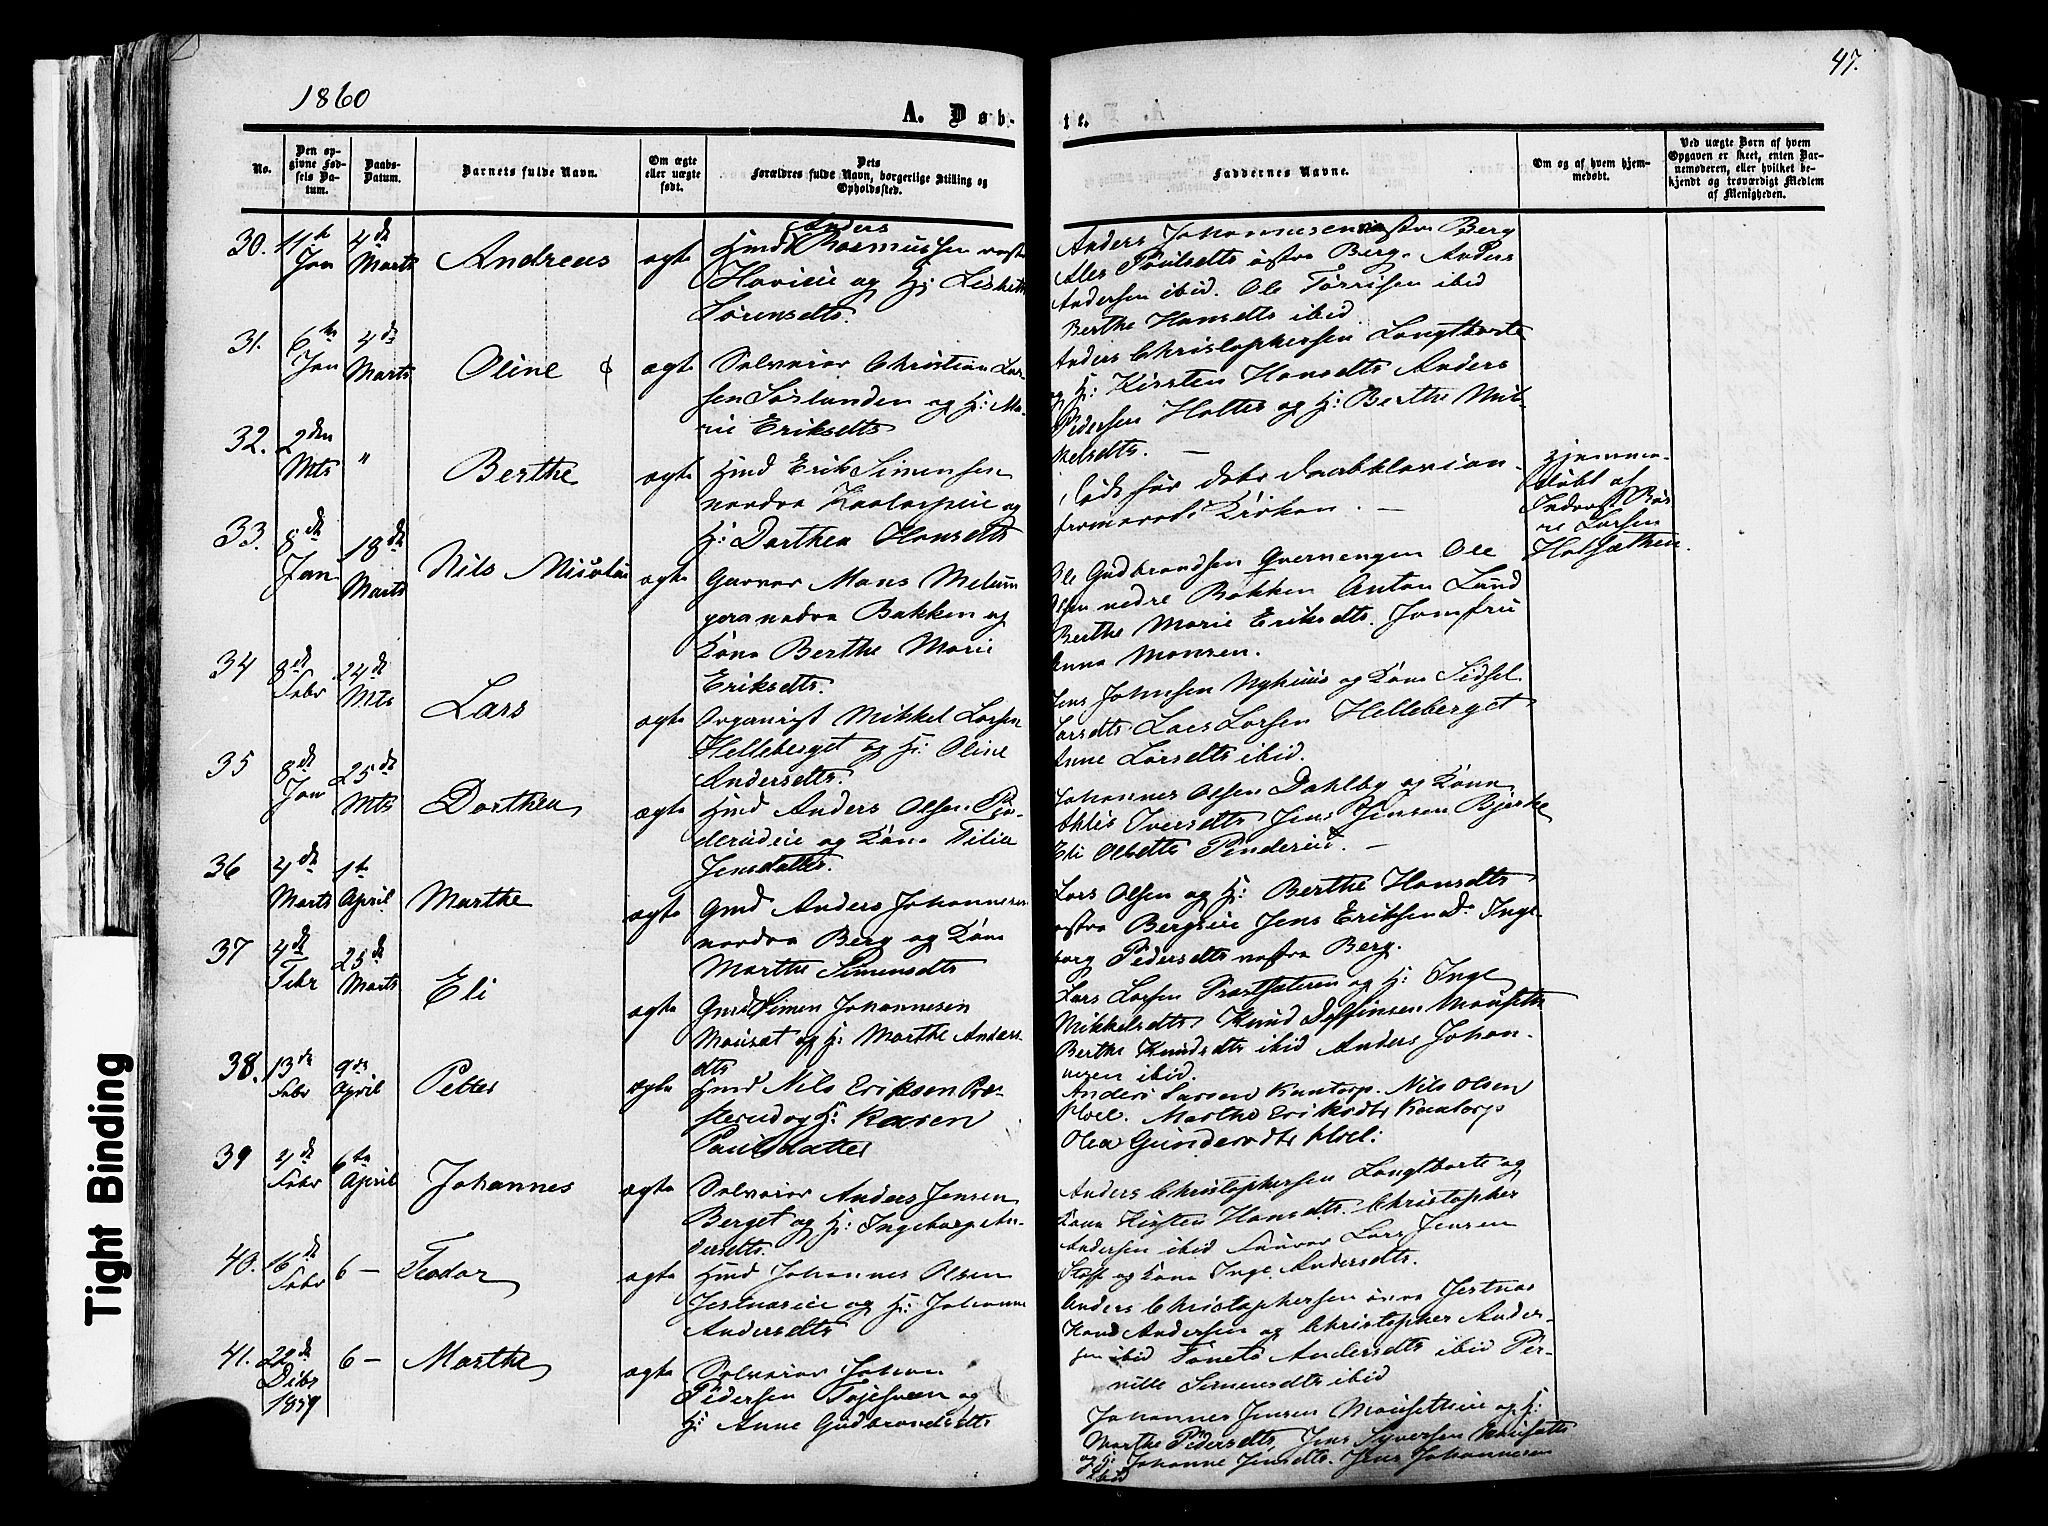 1860
47.
A. Døb-
te.
No.
Den op-
givne Fød-
sels Da-
tum.
Daabs-
Datum.
Barnets fulde Navn.
Om ægte
eller uægte
født.
Dets
Forældres fulde Navn, borgerlige Stilling og
Opholdssted.
Faddernes Navne.
Om og af hvem hjem-
medøbt.
Ved uægte Børn af hvem
Opgaven er skeet, enten Bar-
nemoderen, eller hvilket be-
kjendt og troværdigt Medlem
af Menigheden.
30.
Jan
4de
Marts
Andreas
ægte
Anders
Rasmussen
og H:
Sørensdtr.
Anders Johannesen østre Berg
Poulsdtr østre Berg. Anders
Andersen ibid. Ole ibid
Berthe Hansdtr ibid
31.
6te
Jan
4de
Marts
Oline
ægte
Selveier Christian Lar-
sen og H: Ma-
rie Eriksdtr
Anders Christophersen
og H: Kirsten Hansdtr Anders
Pedersen Holter og H: Berthe Mik-
kelsdtr. —
32.
2den
Mts
"
Berthe
ægte
Hmd Erik Simensen
nordre og
H: Dorthea Hansdtr
Døde før
Kirken. —
Hjemme-
døbt af
Larsen
33.
8de
Jan
18de
Marts
Nils Nicolai
ægte
Garver Mans
nedre Bakken og
Kone Berthe Marie
Eriksdtr.
Ole Gudbrandsen Qvernengen Ole
Olsen nedre Bakken Anton Lund
Berthe Marie Eriksdtr. Jomfru
Anna Monsen.
34
8de
Febr
24de
Mts
Lars
ægte
Organist Mikkel Larsen
Helleberget og H: Oline
Andersdtr.
Jens Johnsen Nyhuus og Kone Sidsel
Larsdtr Lars Larsen Helleberget
Anne Larsdtr ibid.
35
8de
Jan
25de
Mts
Dorthea
ægte
Hmd Anders Olsen
og Kone
Jensdatter
Johannes Olsen Dahlby og Kone
Iversdtr Jens Jensen Bjerke
Eli Olsdtr —
36
4de
Marts
1te
April
Marthe
ægte
Gmd Anders Johannesen
nordre Berg og Kone
Marthe Simensdtr
Lars Olsen og H: Berthe Hansdtr
østre Bergseie Jens Eriksen Do Inge-
borg Pedersdtr østre Berg.
37
4de
Febr
25de
Marts
Eli
ægte
Gmd Simen Johannesen
Mouset og H: Marthe Anders-
dtr
Lars Larsen og H: Inge
Mikkelsdtr Knud
Berthe Knudsdtr ibid Anders Johan-
nesen ibid.
38.
13de
Febr
9de
April
Petter
ægte
Hmd Nils Eriksen Præ-
sterud og H: Karen
Paulsdatter
Anders Larsen Kantorp. Nils Olsen
Hoel. Marthe Eriksdtr Kantorp
Olea Gundersdtr Hoel.
39
4de
Febr
6te
April
Johannes
ægte
Selveier Anders Jensen
Berget og H: Ingeborg An-
dersdtr.
Anders Christophersen og
Kone Kirsten Hansdtr. Christopher
Andersen ibid Lars Jensen
og Kone Inge Andersdtr.
40.
16de
Febr
6 —
Teodor
ægte
Hmd Johannes Olsen
og H: Johanne
Andersdtr
Anders Christophersen
Andersen og Christopher Ander-
sen ibid Andersdtr ibid Per-
nille Simensdtr ibid
41.
22de
Dcbr
1859
6 —
Marthe
ægte
Selveier Johan
Pedersen og
H: Anne Gudbrandsdtr
Johannes Jensen og H:
Marthe Pedersdtr, Jens Syversen
og H: Johanne Jensdtr. Jens Johannesen
ibid
Tight Binding